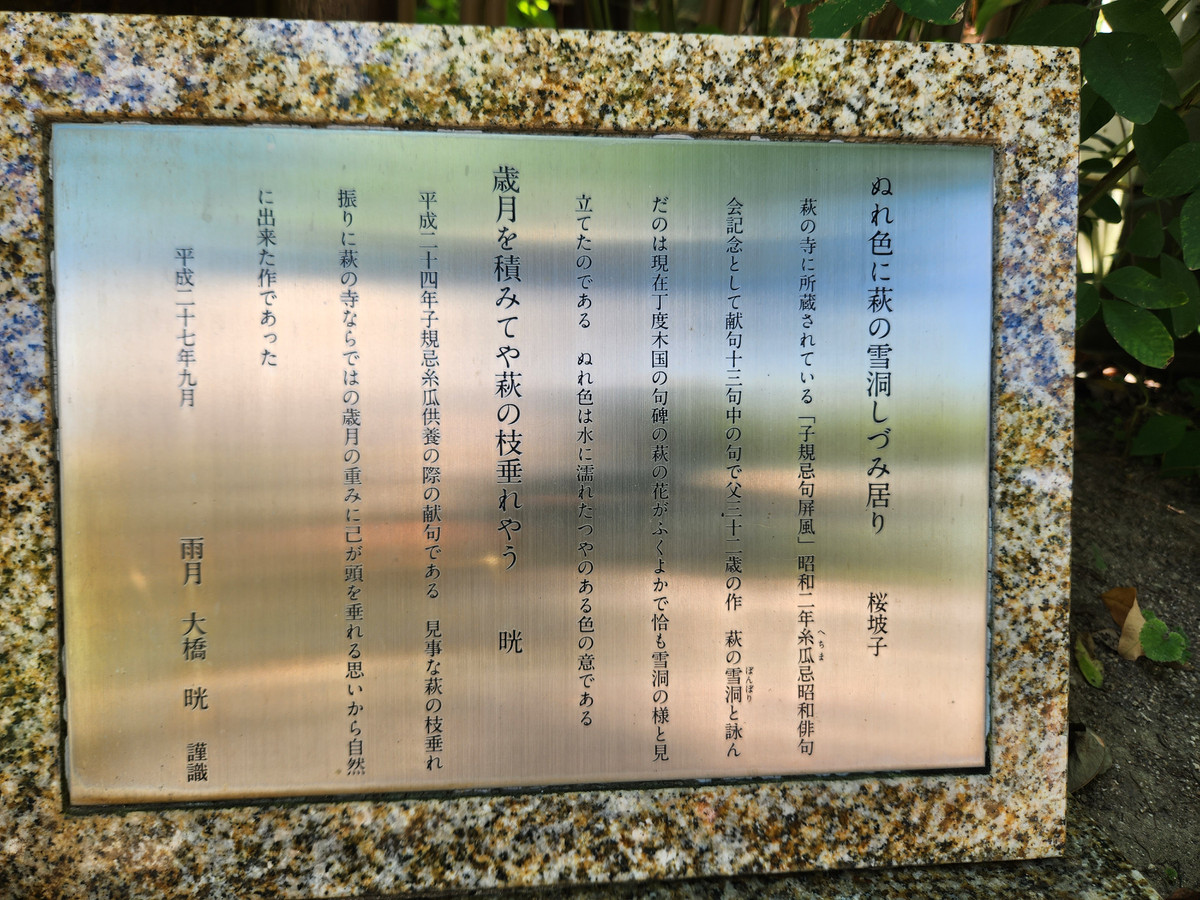 ぬれ色に萩の雪洞しづみ居り　桜坡子
萩の寺に所蔵されている「子規忌句屏風」昭和二年糸瓜忌昭和俳句
会記念として献句十三句中の句で父三十二歳の作　萩の雪洞と詠ん
だのは現在丁度木国の句碑の萩の花がふくよかで恰も雪洞の様と見
立てたのである　ぬれ色は水に濡れたつやのある色の意である
歳月を積みてや萩の枝垂れやう　晄
平成二十四年子規忌糸瓜供養の際の献句である　見事な萩の枝垂れ
振りに萩の寺ならではの歳月の重みに己が頭を垂れる思いから自然
に出来た作であった
平成二十七年九月
雨月　大橋　晄　謹識
へちま
ぼんぼり